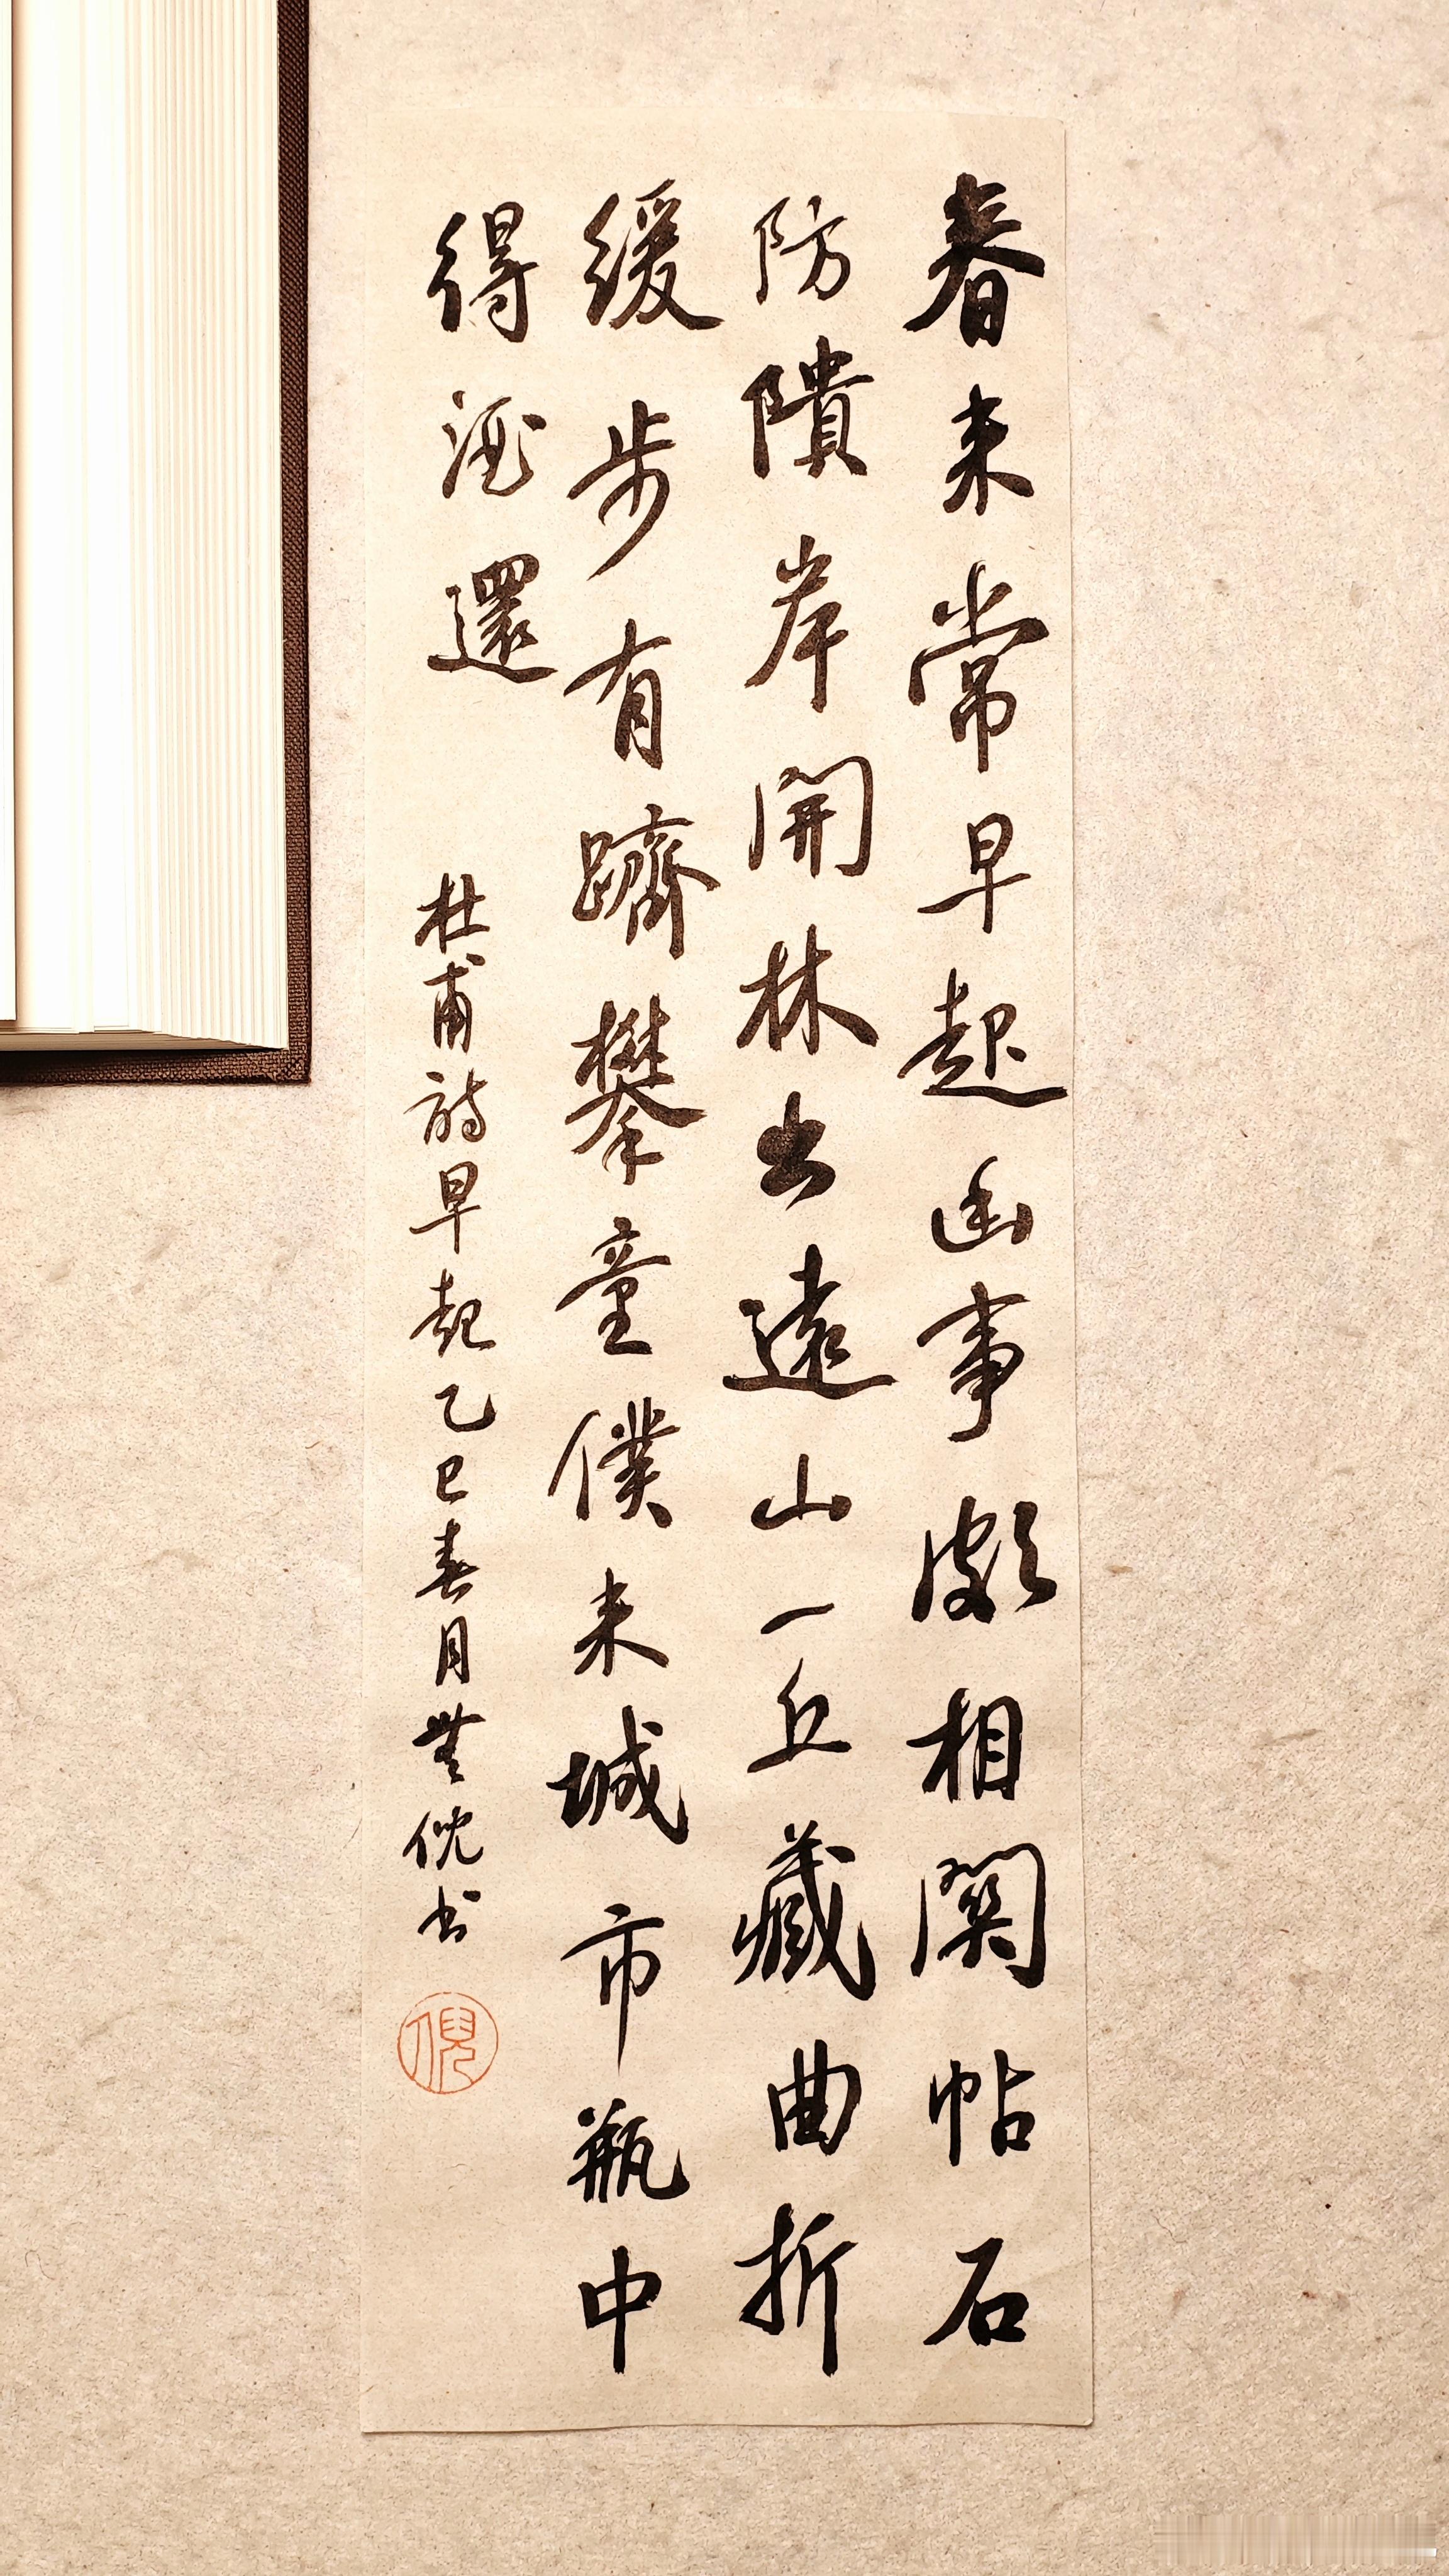 春来常早起幽事頗相関帖石
防隤岸開林出遠山一丘藏曲折
緩步有躋攀童僕来城市瓶中
得酒還
杜甫詩早起乙巳春月無倪书
倪